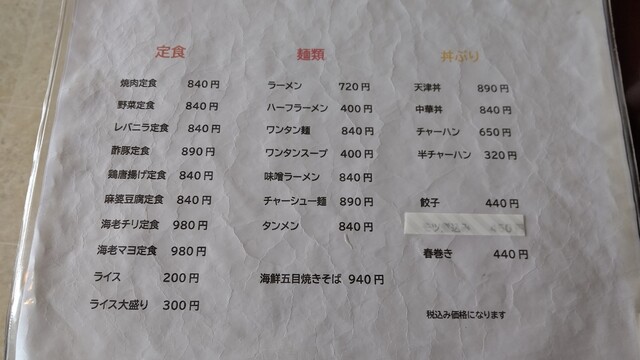 定食
焼肉定食 840円
野菜定食 840円
レバニラ定食 840円
酢豚定食 890円
鶏唐揚げ定食 840円
麻婆豆腐定食 840円
海老チリ定食 980円
海老マヨ定食 980円
ライス 200円
ライス大盛り 300円
麺類
ラーメン 720円
ハーフラーメン 400円
ワンタン麺 840円
ワンタンスープ 400円
味噌ラーメン 840円
チャーシュー麺 890円
タンメン 840円
海鮮五目焼きそば 940円
丼ぶり
天津丼 890円
中華丼 840円
チャーハン 650円
半チャーハン 320円
餃子 440円
春巻き 440円
税込み価格になります